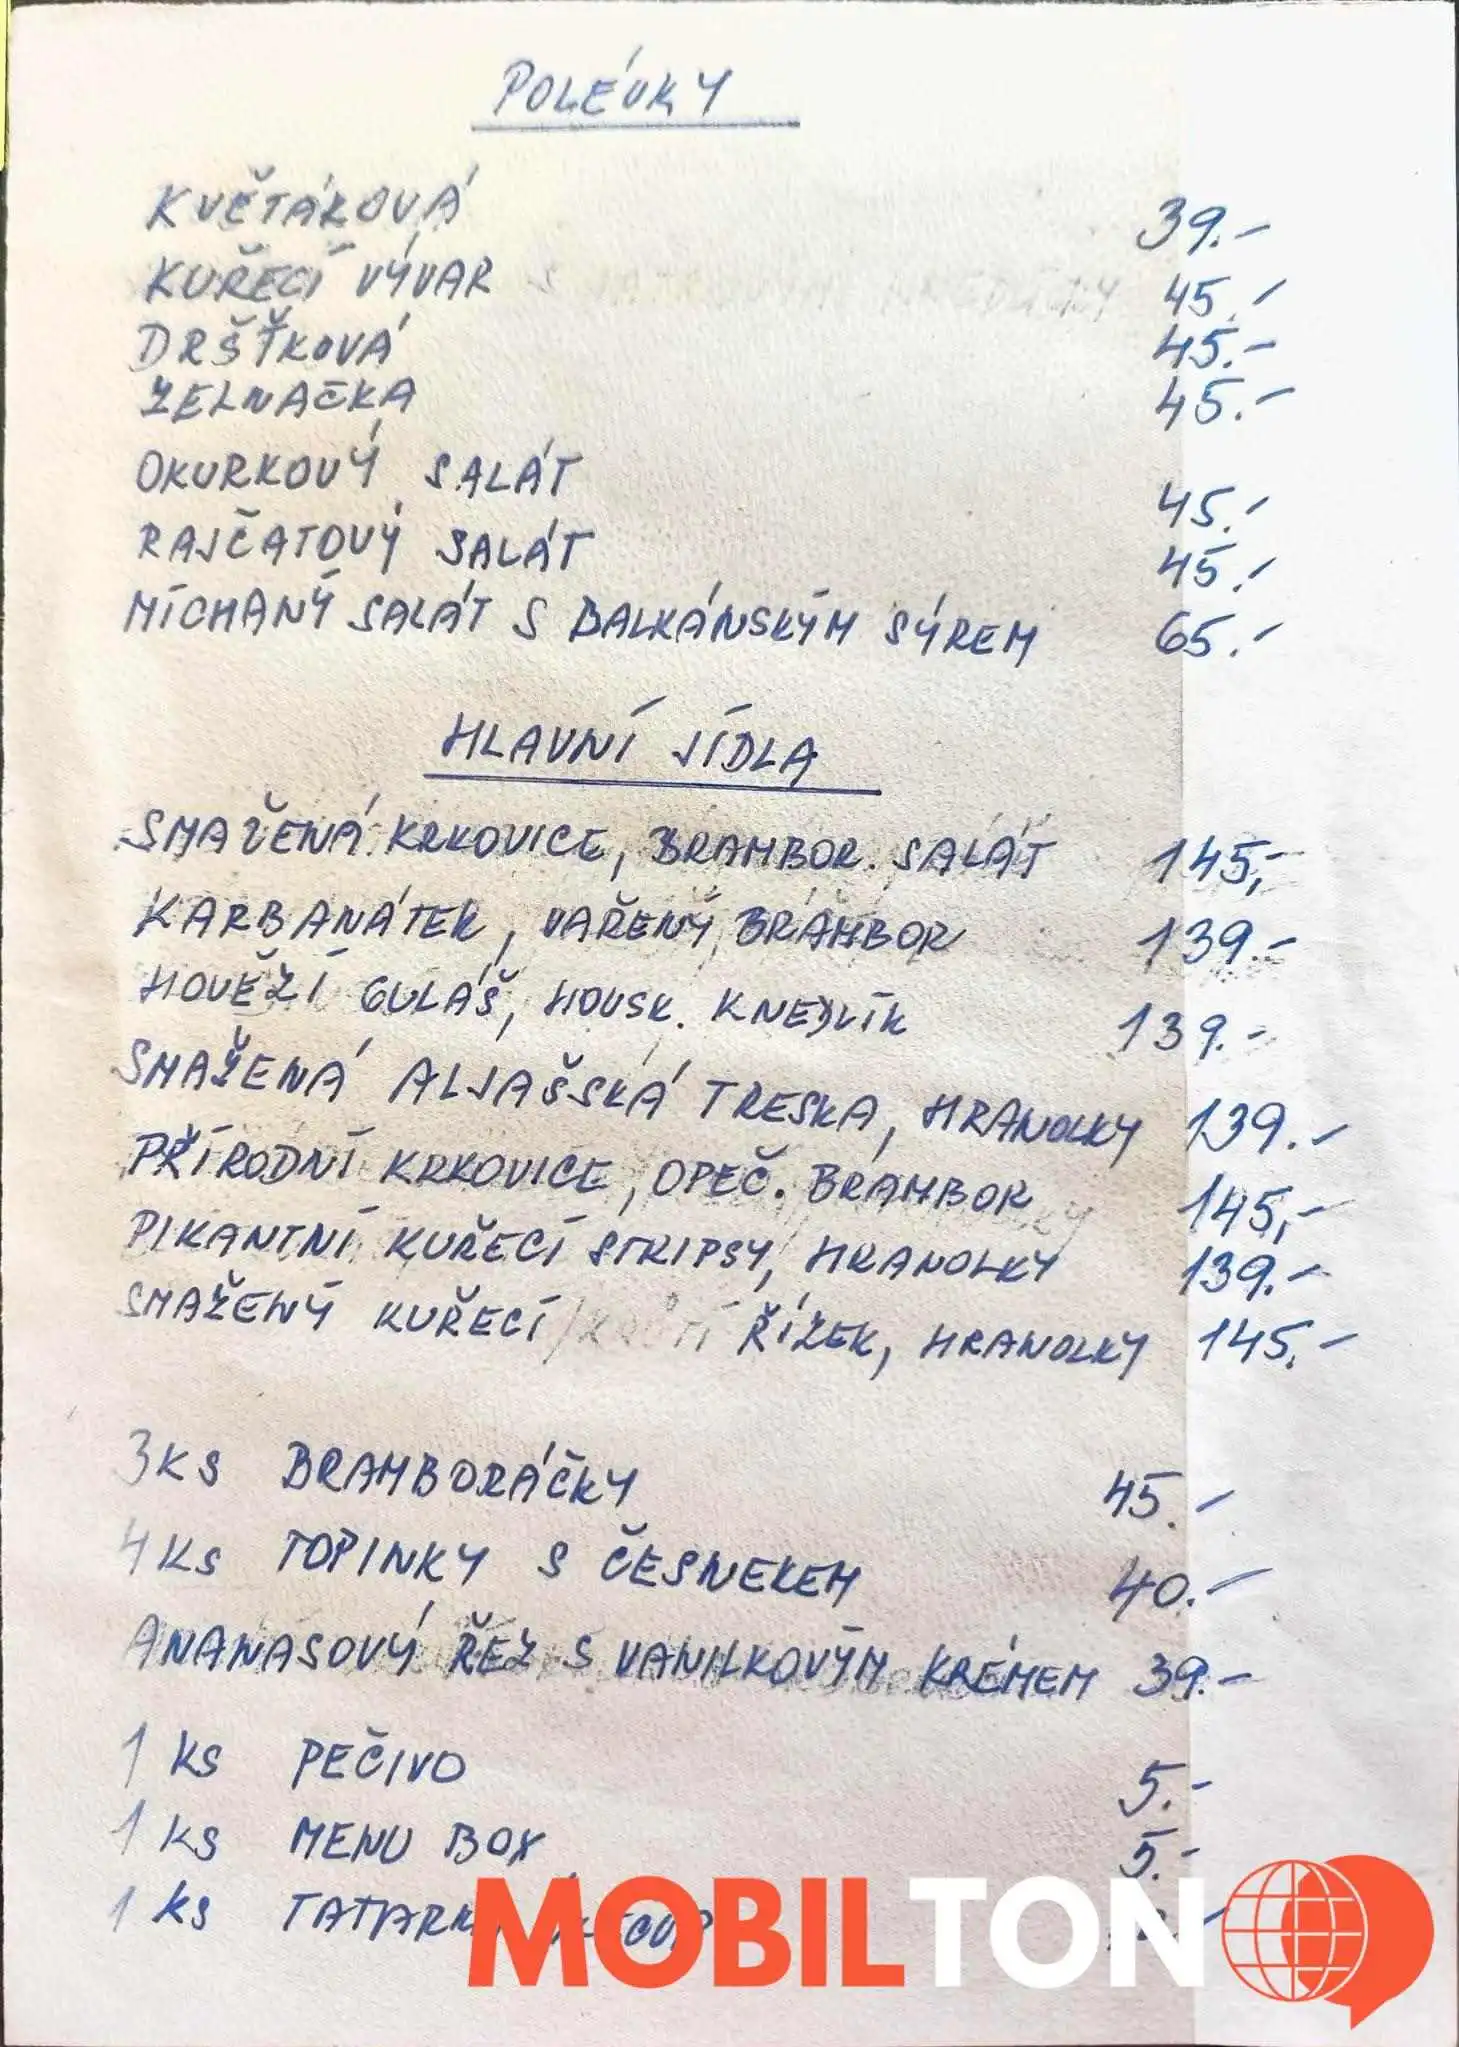 POLÉVKY
KVĚTÁKOVÁ 39.-
KUŘECÍ VÝVAR 45.-
DRŠŤKOVÁ 45.-
ZELNAČKA 45.-
OKURKOVÝ SALÁT 45.-
RAJČATOVÝ SALÁT 45.-
MÍCHANÝ SALÁT S BALKÁNSKÝM SÝREM 65.-
HLAVNÍ JÍDLA
SMAŽENÁ KRKOVICE, BRAMBOR. SALÁT 145,-
KARBANÁTEK, VAŘENÝ BRAMBOR 139.-
HOVĚZÍ GULÁŠ, HOUSK. KNEDLÍK 139.-
SMAŽENÁ ALJAŠSKÁ TRESKA, HRANOLKY 139.-
PŘÍRODNÍ KRKOVICE, OPEČ. BRAMBOR 145,-
PIKANTNÍ KUŘECÍ STRIPSY, HRANOLKY 139.-
SMAŽENÝ KUŘECÍ ŘÍZEK, HRANOLKY 145.-
3 KS BRAMBORÁČKY 45.-
4 KS TOPINKY S ČESNEKEM 40.-
ANANASOVÝ ŘEZ S VANILKOVÝM KRÉMEM 39.-
1 KS PEČIVO 5.-
1 KS MENU BOX 5.-
1 KS
MOBILTON